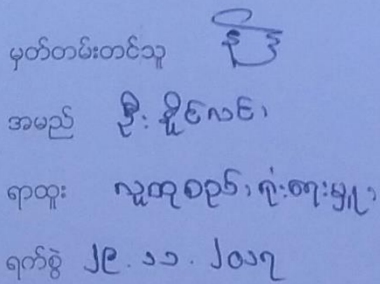 မှတ်တမ်းတင်သူ
အမည် ဦးစိုင်လင်း
ရာထူး လူထုစည်းရုံးရေးမှူး
ရက်စွဲ ၂၉.၁၁.၂၀၁၇